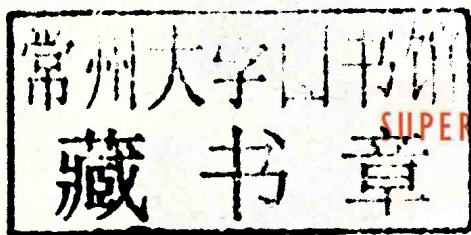 常州大学图书馆
SUPER
藏书章